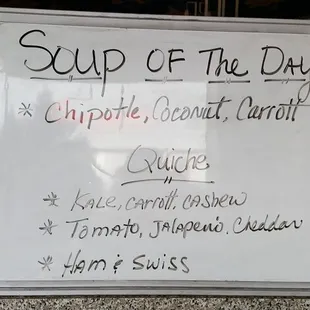 Soup of The Day
* Chipotle, Coconut, Carrott
Quiche
* Kale, carrott, cashew
* Tomato, Jalapeño, Cheddar
* Ham & Swiss